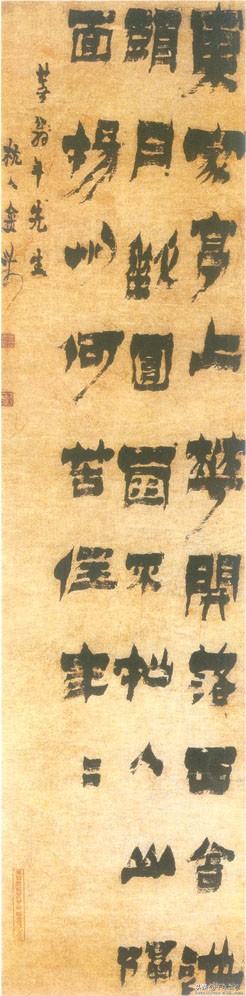 東家亭上華開落西舍池
頭月圓不把人山隔
面揚州何苦住年〻
翁年先生
杭人金農